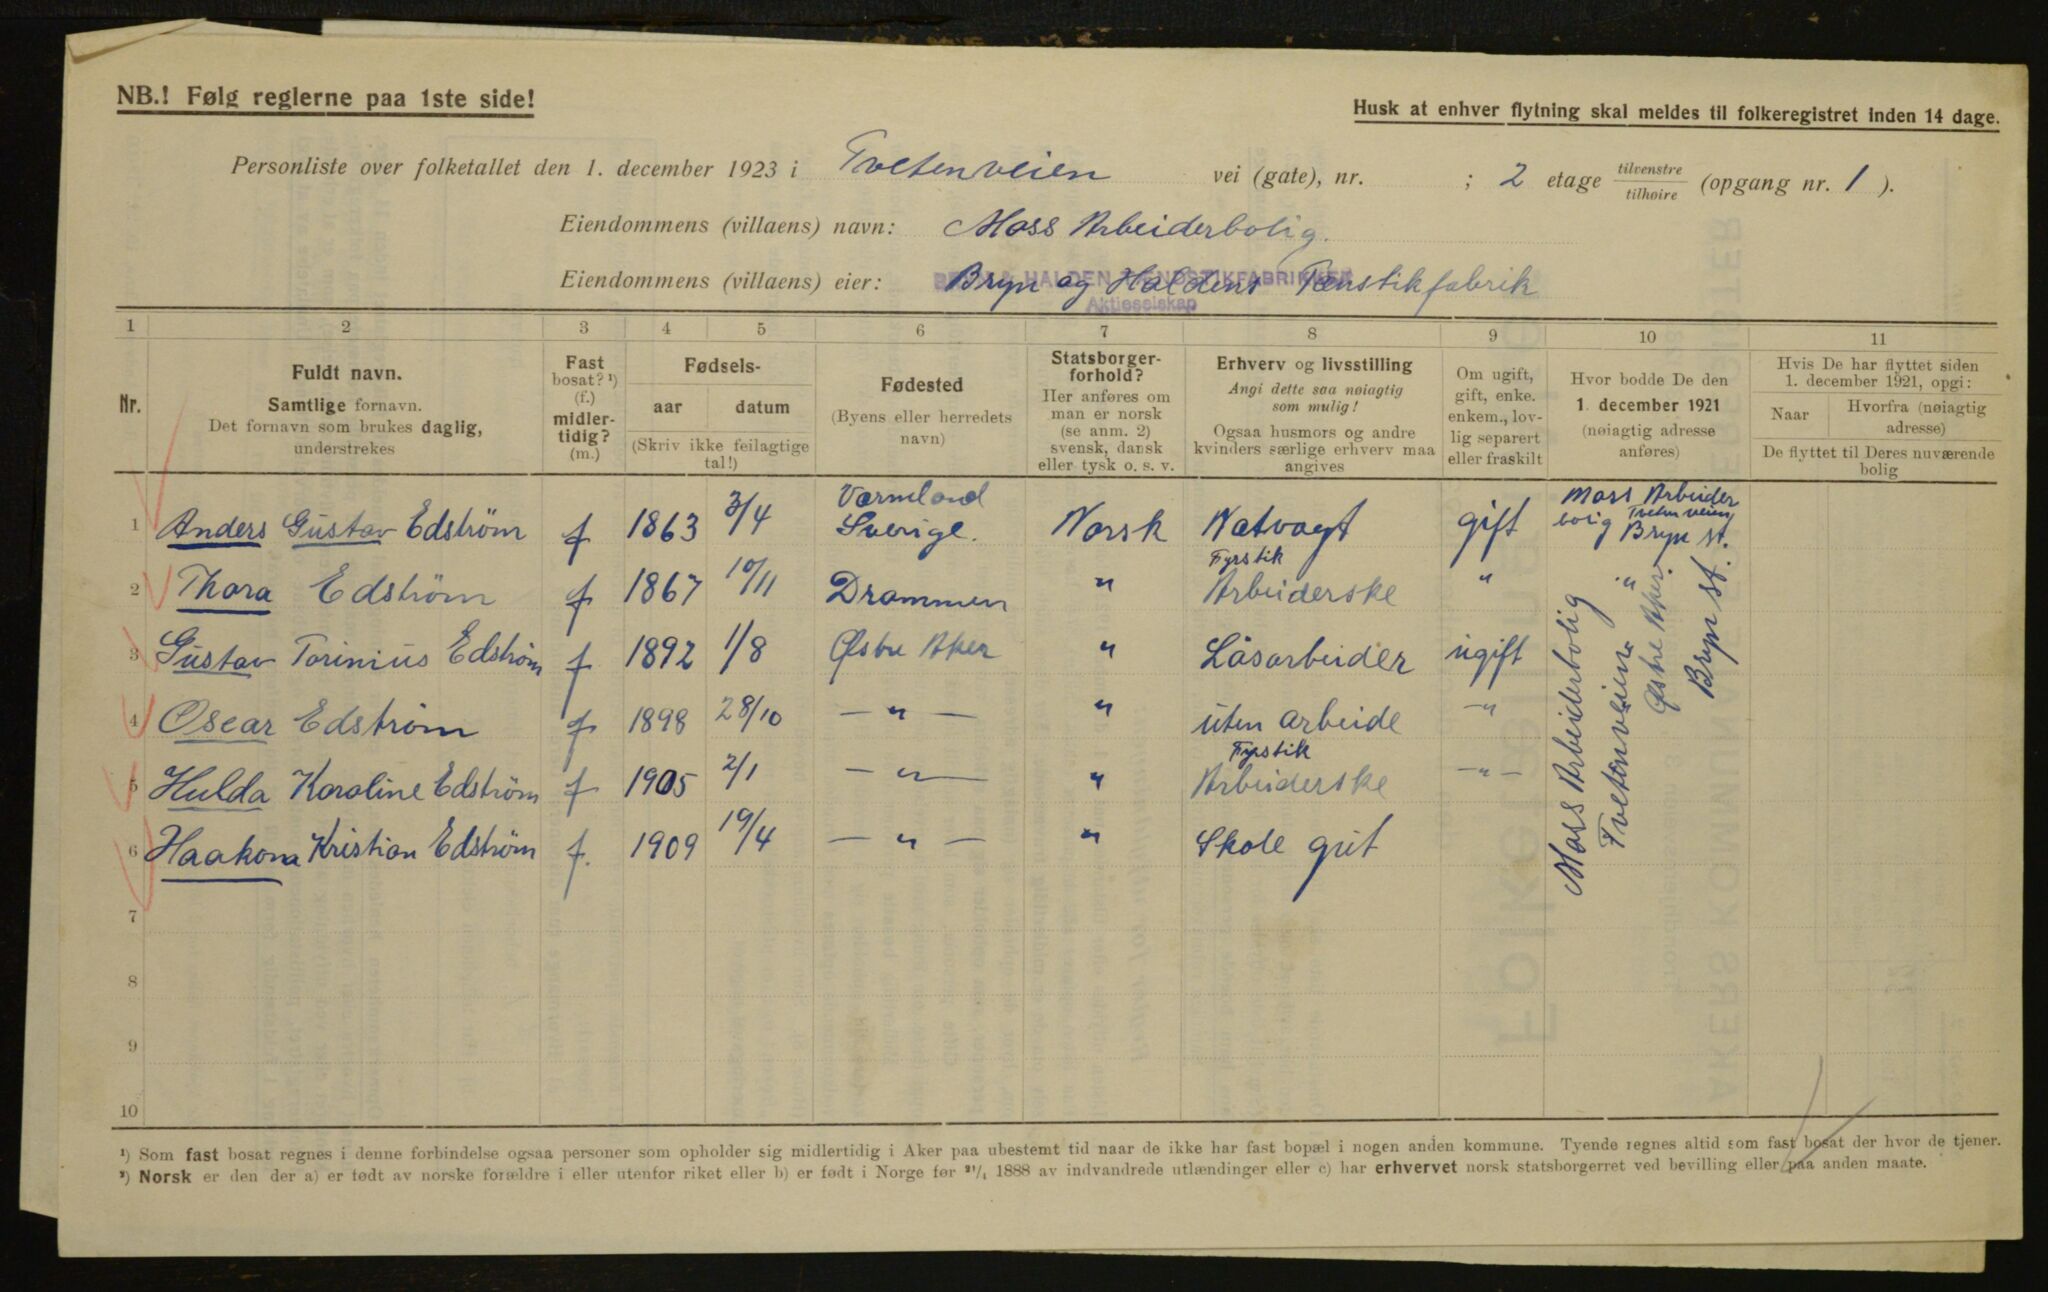 NB.! Følg reglerne paa 1ste side!
Husk at enhver flytning skal meldes til folkeregistret inden 14 dage.
Personliste over folketallet den 1. december 1923 i Tvetenveien vei (gate), nr. ; 2 etage tilvenstre / tilhøire (opgang nr. 1 ).
Eiendommens (villaens) navn: Moss Arbeiderbolig.
Eiendommens (villaens) eier: Bryn og Haldens Tænstikfabrik
BRYN & HALDEN TÆNDSTIKFABRIKKER
Aktieselskap
1 2 3 4 5 6 7 8 9 10 11
Nr.
Fuldt navn.
Samtlige fornavn.
Det fornavn som brukes daglig,
understrekes
Fast
bosat? ¹)
(f.)
midler-
tidig?
(m.)
Fødsels-
aar datum
(Skriv ikke feilagtige
tal!)
Fødested
(Byens eller herredets
navn)
Statsborger-
forhold?
Her anføres om
man er norsk
(se anm. 2)
svensk, dansk
eller tysk o. s. v.
Erhverv og livsstilling
Angi dette saa nøiagtig
som mulig!
Ogsaa husmors og andre
kvinders særlige erhverv maa
angives
Om ugift,
gift, enke.
enkem., lov-
lig separert
eller fraskilt
Hvor bodde De den
1. december 1921
(nøiagtig adresse
anføres)
Hvis De har flyttet siden
1. december 1921, opgi:
Naar Hvorfra (nøiagtig
adresse)
De flyttet til Deres nuværende
bolig
1 Anders Gustav Edström f 1863 3/4 Værmland Sverige. Norsk Natvagt gift Moss Arbeider bolig Tvetenveien Bryn st.
2 Thora Edström f 1867 10/11 Drammen " Fyrstik Arbeiderske " "
3 Gustav Torinius Edström f 1892 1/8 Østre Aker " Låsarbeider ugift
4 Oscar Edström f 1898 28/10 — " — " uten arbeide — "
5 Hulda Karoline Edström f 1905 2/1 — " — " Fyrstik Arbeiderske — " —
6 Haakon Kristian Edström f. 1909 19/4 — " — " Skole gut
Moss Arbeiderbolig
Tvetenveien
Østre Aker.
Bryn st.
7
8
9
10
¹) Som fast bosat regnes i denne forbindelse ogsaa personer som opholder sig midlertidig i Aker paa ubestemt tid naar de ikke har fast bopæl i nogen anden kommune. Tyende regnes altid som fast bosat der hvor de tjener.
²) Norsk er den der a) er født av norske forældre i eller utenfor riket eller b) er født i Norge før ²¹/₄ 1888 av indvandrede utlændinger eller c) har erhvervet norsk statsborgerret ved bevilling eller paa anden maate.